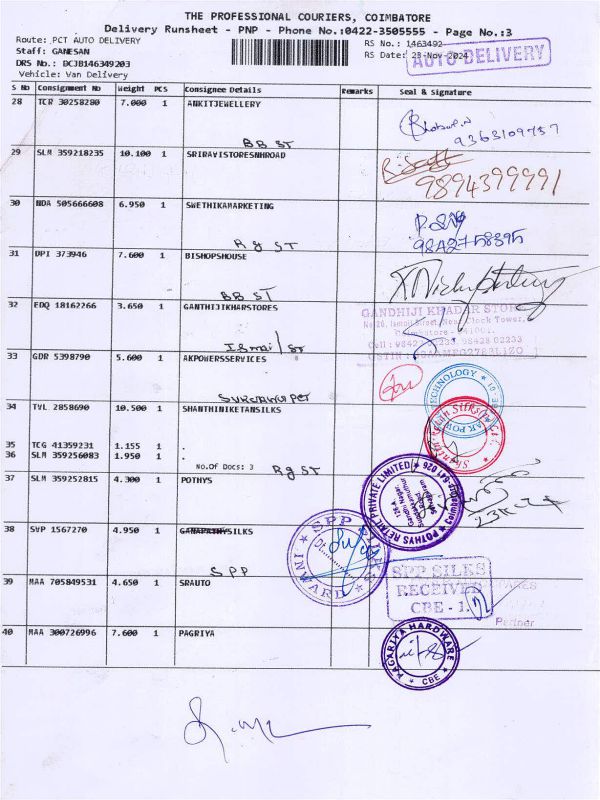 THE PROFESSIONAL COURIERS, COIMBATORE
Delivery Runsheet - PNP - Phone No.:0422-3505555 - Page No.:3
Route: PCT AUTO DELIVERY
RS No.: 1463492
Staff: GANESAN
RS Date: 23-Nov-2024
AUTO DELIVERY
DRS No.: DCJB146349203
Vehicle: Van Delivery
S No Consignment No Weight PCS Consignee Details Remarks Seal & Signature
28 TCR 30258280 7.000 1 ANKITJEWELLERY
9363109757
BB ST
29 SLM 359218235 10.100 1 SRIRAVISTORESNHROAD
9894399991
30 NDA 505666608 6.950 1 SWETHIKAMARKETING
Rg ST
31 DPI 373946 7.600 1 BISHOPSHOUSE
BB ST
32 EDQ 18162266 3.650 1 GANTHIJIKHARSTORES
GANDHIJI KHADAR STORES
No 26, Ismail Street, Near Clock Tower,
Coimbatore
Ismail ST
33 GDR 5398790 5.600 1 AKPOWERSSERVICES
34 TVL 2858690 10.500 1 SHANTHINIKETANSILKS
35 TCG 41359231 1.155 1 .
36 SLM 359256083 1.950 1 .
No.Of Docs: 3 Rg ST
37 SLM 359252815 4.300 1 POTHYS
POTHYS RETAIL PRIVATE LIMITED
38 SVP 1567270 4.950 1 GANAPATHYSILKS
SPP
SPP SILKS
RECEIVED
CBE - 1.
39 MAA 705849531 4.650 1 SRAUTO
Partner
40 MAA 300726996 7.600 1 PAGRIYA
PAGARIYA HARDWARE
CBE